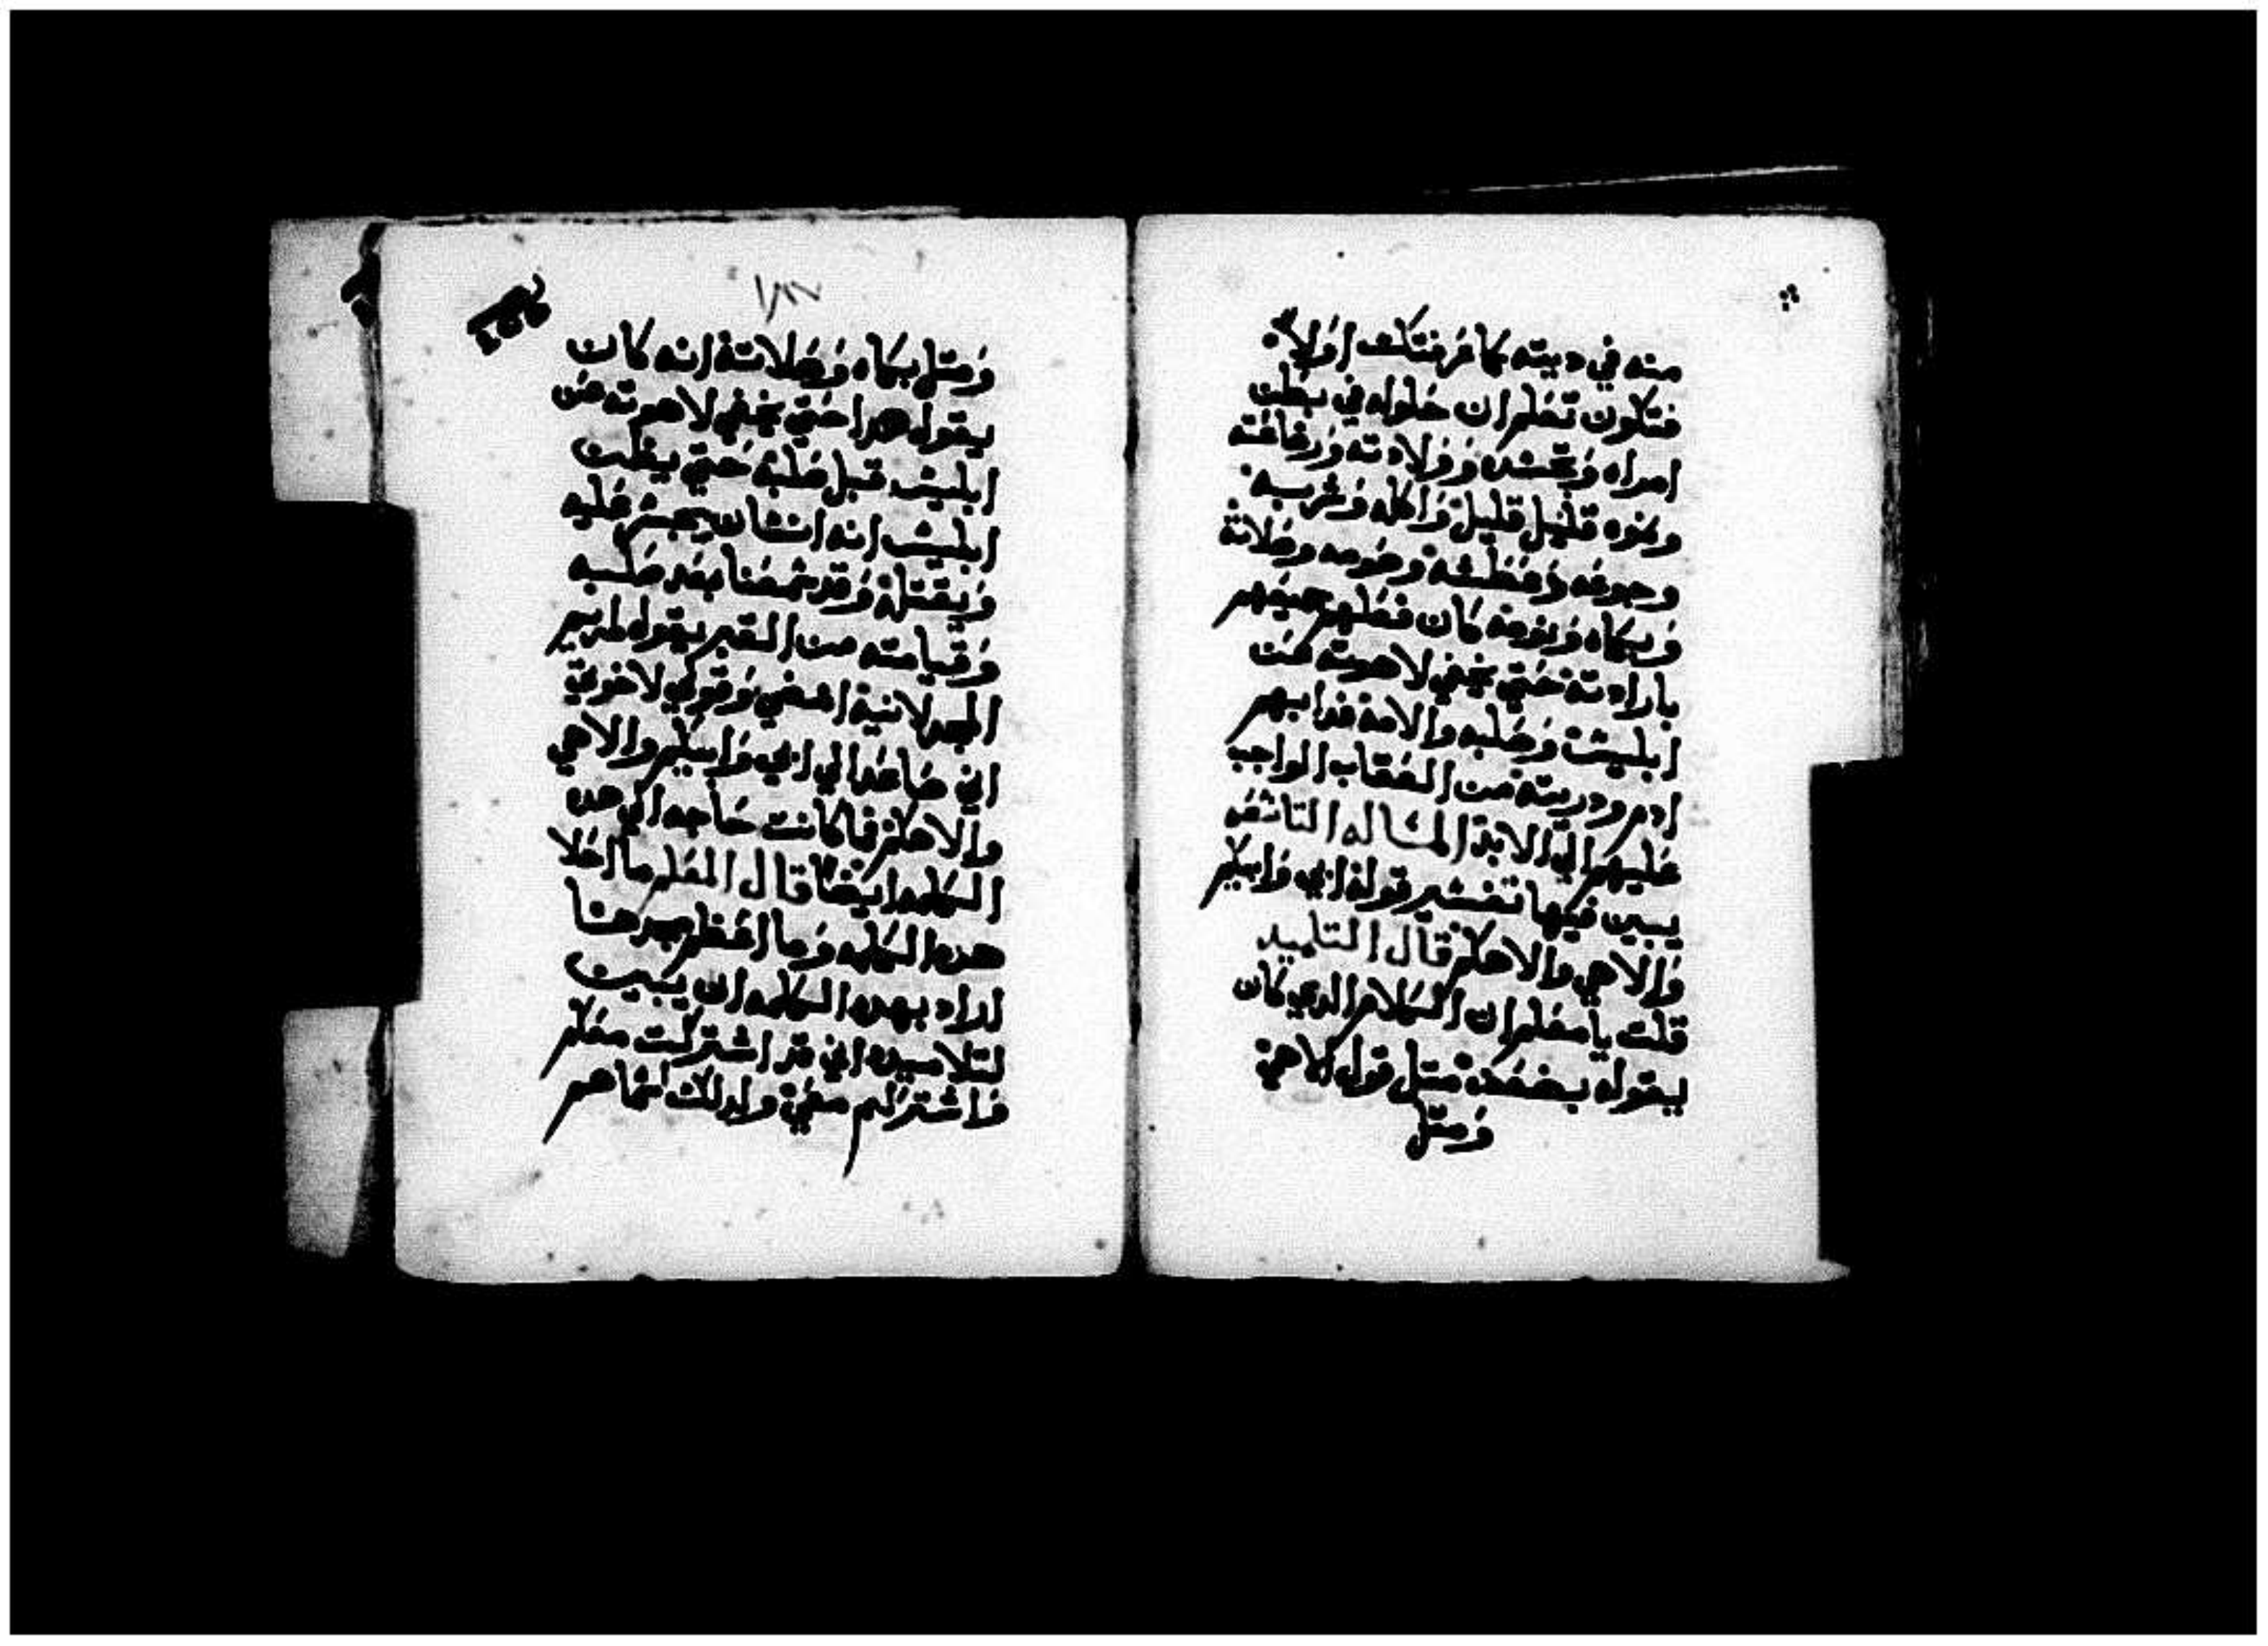 منه في دبيته كما عرفتك اولا
فتكون تعلم ان حلوله في بطن
امراه وتجسده وولادته ورضاعته
ونموه قليل قليل واكله وشربه
وجوعه وعطشه ونومه وصلاته
وبكاه ونوحه كان فعلهم جميعهم
بارادته حتي يخفي لاهوته عن
ابليس وصلبه والامه فدا بهم
ادم ودريته من العقاب الواجب
عليهم الي الابد المساله التاسعه
يبين فيها تفسير قوله ابي وابيكم
والاهي والاهكم قال التلميد
قلت يا معلم ان الكلام الدي كان
يقوله بضعف متل قول الاهي
ومتل
١٨٧
ومتل بكاه وصلاته انه كان
يقول هدا حتي يخفي لاهوته عن
ابليس قبل صلبه حتي يظن
ابليس انه انسان يجسر عليه
ويقتله وقد سمعنا بعد صلبه
وقيامته من القبر يقول لمريم
المجدلانية امضي وقولي لاخوتي
اني صاعد الي ابي وابيكم والاهي
والاهكم فما كانت حاجه الي هده
الكلمه ايضا قال المعلم ما احلا
هده الكلمه وما اعظم مجدها
اراد بهده الكلمه ان يبين
لتلاميده اني قد اشتركت معكم
واشتركتم معي ولدلك سماهم